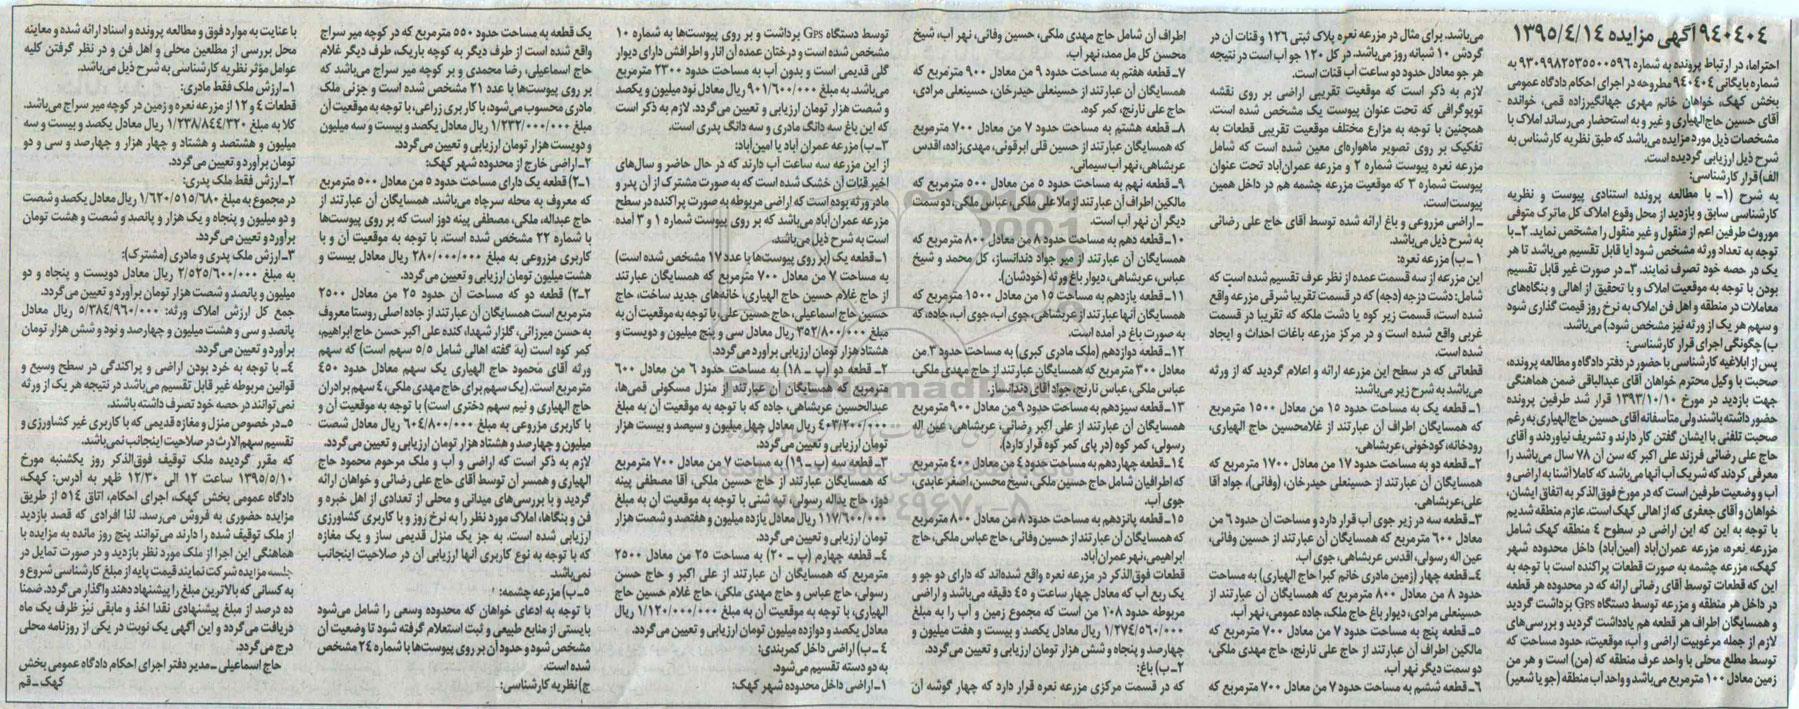 ۹۴۰۴۰۴ آگهی مزایده ۱۳۹۵/۴/۱۴
احتراما، در ارتباط پرونده به شماره ۹۳۰۹۹۸۲۵۳۵۵۰۰۵۹۶ به
شماره بایگانی ۹۴۰۴۰۴ مطروحه در اجرای احکام دادگاه عمومی
بخش کهک، خواهان خانم مهری جهانگیرزاده قمی، خوانده
آقای حسین حاج‌الهیاری و غیر و به استحضار می‌رساند املاک با
مشخصات ذیل مورد مزایده می‌باشد که طبق نظریه کارشناس به
شرح ذیل ارزیابی گردیده است.
الف) قرار کارشناسی:
به شرح (۱ـ با مطالعه پرونده استنادی پیوست و نظریه
کارشناسی سابق و بازدید از محل وقوع املاک کل ماترک متوفی
موروث طرفین اعم از منقول و غیر منقول را مشخص نماید. ۲ـ با
توجه به تعداد ورثه مشخص شود آیا قابل تقسیم می‌باشد تا هر
یک در حصه خود تصرف نمایند. ۳ـ در صورت غیر قابل تقسیم
بودن با توجه به موقعیت املاک و با تحقیق از اهالی و بنگاه‌های
معاملات در منطقه و اهل فن املاک به نرخ روز قیمت گذاری شود
و سهم هر یک از ورثه نیز مشخص شود.) می‌باشد.
ب) چگونگی اجرای قرار کارشناسی:
پس از ابلاغیه کارشناسی با حضور در دفتر دادگاه و مطالعه پرونده،
صحبت با وکیل محترم خواهان آقای عبدالباقی ضمن هماهنگی
جهت بازدید در مورخ ۱۳۹۳/۱۰/۱۰ قرار شد طرفین پرونده
حضور داشته باشند ولی متأسفانه آقای حسین حاج‌الهیاری به رغم
صحبت تلفنی با ایشان گفتن کار دارند و تشریف نیاوردند و آقای
حاج علی رضائی فرزند علی اکبر که سن آن ۷۸ سال می‌باشد را
معرفی کردند که شریک آب آنها می‌باشد که کاملا آشنا به اراضی و
آب و وضعیت طرفین است که در مورخ فوق‌الذکر به اتفاق ایشان،
خواهان و آقای جعفری که از اهالی کهک است. عازم منطقه شدیم
با توجه به این که این اراضی در سطوح ۴ منطقه کهک شامل
مزرعه نعره، مزرعه عمران‌آباد (امین‌آباد) داخل محدوده شهر
کهک، مزرعه چشمه به صورت قطعات پراکنده است با توجه به
این که قطعات توسط آقای رضائی ارائه که در محدوده هر قطعه
در داخل هر منطقه و مزرعه توسط دستگاه GPS برداشت گردید
و همسایگان اطراف هر قطعه هم یادداشت گردید و بررسی‌های
لازم از جمله مرغوبیت اراضی و آب، موقعیت، حدود مساحت که
توسط مطلع محلی با واحد عرف منطقه که (من) است و هر من
زمین معادل ۱۰۰ مترمربع می‌باشد و واحد آب منطقه (جو یا شعیر)
می‌باشد. برای مثال در مزرعه نعره پلاک ثبتی ۱۲۶ و قنات آن در
گردش ۱۰ شبانه روز می‌باشد. در کل ۱۲۰ جو آب است در نتیجه
هر جو معادل حدود دو ساعت آب قنات است.
لازم به ذکر است که موقعیت تقریبی اراضی بر روی نقشه
توپوگرافی که تحت عنوان پیوست یک مشخص شده است.
همچنین با توجه به مزارع مختلف موقعیت تقریبی قطعات به
تفکیک بر روی تصویر ماهواره‌ای معین شده است که شامل
مزرعه نعره پیوست شماره ۲ و مزرعه عمران‌آباد تحت عنوان
پیوست شماره ۳ که موقعیت مزرعه چشمه هم در داخل همین
پیوست است.
ـ اراضی مزروعی و باغ ارائه شده توسط آقای حاج علی رضائی
به شرح ذیل می‌باشد.
۱ـ ب) مزرعه نعره:
این مزرعه از سه قسمت عمده از نظر عرف تقسیم شده است که
شامل: دشت درجه (دجه) که در قسمت تقریبا شرقی مزرعه واقع
شده است، قسمت زیر کوه یا دشت ملکه که تقریبا در قسمت
غربی واقع شده است و در مرکز مزرعه باغات احداث و ایجاد
شده است.
قطعاتی که در سطح این مزرعه ارائه و اعلام گردید که از ورثه
می‌باشد به شرح زیر می‌باشد:
۱ـ قطعه یک به مساحت حدود ۱۵ من معادل ۱۵۰۰ مترمربع
که همسایگان اطراف آن عبارتند از غلامحسین حاج الهیاری،
رودخانه، کودخونی، عربشاهی.
۲ـ قطعه دو به مساحت حدود ۱۷ من معادل ۱۷۰۰ مترمربع که
همسایگان آن عبارتند از حسینعلی حیدرخان، (وفائی)، جواد آقا
علی، عربشاهی.
۳ـ قطعه سه در زیر جوی آب قرار دارد و مساحت آن حدود ۶ من
معادل ۶۰۰ مترمربع که همسایگان آن عبارتند از حسین وفائی،
عین اله رسولی، اقدس عربشاهی، جوی آب.
۴ـ قطعه چهار (زمین مادری خانم کبرا حاج الهیاری) به مساحت
حدود ۸ من معادل ۸۰۰ مترمربع که همسایگان آن عبارتند از
حسینعلی مرادی، دیوار باغ حاج ملک، جاده عمومی، نهر آب.
۵ـ قطعه پنج به مساحت حدود ۷ من معادل ۷۰۰ مترمربع که
مالکین اطراف آن عبارتند از حاج علی نارنج، حاج مهدی ملکی،
دو سمت دیگر نهر آب.
۶ـ قطعه ششم به مساحت حدود ۷ من معادل ۷۰۰ مترمربع که
اطراف آن شامل حاج مهدی ملکی، حسین وفائی، نهر آب، شیخ
محسن کل مل ممد، نهر آب.
۷ـ قطعه هفتم به مساحت حدود ۹ من معادل ۹۰۰ مترمربع که
همسایگان آن عبارتند از حسینعلی حیدرخان، حسینعلی مرادی،
حاج علی نارنج، کمر کوه.
۸ـ قطعه هشتم به مساحت حدود ۷ من معادل ۷۰۰ مترمربع
که همسایگان عبارتند از حسین قلی ابرقونی، مهدی‌زاده، اقدس
عربشاهی، نهر آب سیمانی.
۹ـ قطعه نهم به مساحت حدود ۵ من معادل ۵۰۰ مترمربع که
مالکین اطراف آن عبارتند از ملا علی ملکی، عباس ملکی، دو سمت
دیگر آن نهر آب است.
۱۰ـ قطعه دهم به مساحت حدود ۸ من معادل ۸۰۰ مترمربع که
همسایگان آن عبارتند از میر جواد دندانساز، کل محمد و شیخ
عباس، عربشاهی، دیوار باغ ورثه (خودشان).
۱۱ـ قطعه یازدهم به مساحت ۱۵ من معادل ۱۵۰۰ مترمربع که
همسایگان آنها عبارتند از عربشاهی، جوی آب، جوی آب، جاده، که
به صورت باغ در آمده است.
۱۲ـ قطعه دوازدهم (ملک مادری کبری) به مساحت حدود ۳ من
معادل ۳۰۰ مترمربع که همسایگان عبارتند از حاج مهدی ملکی،
عباس ملکی، عباس نارنج، جواد آقای دندانساز.
۱۳ـ قطعه سیزدهم به مساحت حدود ۹ من معادل ۹۰۰ مترمربع
که همسایگان آن عبارتند از علی اکبر رضائی، عربشاهی، عین اله
رسولی، کمر کوه (در پای کمر کوه قرار دارد).
۱۴ـ قطعه چهاردهم به مساحت حدود ۴ من معادل ۴۰۰ مترمربع
که اطرافیان شامل حاج حسین ملکی، شیخ محسن، اصغر عابدی،
جوی آب.
۱۵ـ قطعه پانزدهم به مساحت حدود ۸ من معادل ۸۰۰ مترمربع
که همسایگان آن عبارتند از حسین وفائی، حاج عباس ملکی، حاج
ابراهیمی، نهر عمران آباد.
قطعات فوق‌الذکر در مزرعه نعره واقع شده‌اند که دارای دو جو و
یک ربع آب که معادل چهار ساعت و ۴۵ دقیقه می‌باشد و اراضی
مربوطه حدود ۱۰۸ من است که مجموع زمین و آب را به مبلغ
۱/۲۷۴/۵۶۰/۰۰۰ ریال معادل یکصد و بیست و هفت میلیون و
چهارصد و پنجاه و شش هزار تومان ارزیابی و تعیین می‌گردد.
۲ـ ب) باغ:
که در قسمت مرکزی مزرعه نعره قرار دارد که چهار گوشه آن
توسط دستگاه GPS برداشت و بر روی پیوست‌ها به شماره ۱۰
مشخص شده است و درختان عمده آن انار و اطرافش دارای دیوار
گلی قدیمی است و بدون آب به مساحت حدود ۲۳۰۰ مترمربع
می‌باشد. به مبلغ ۹۰۱/۶۰۰/۰۰۰ ریال معادل نود میلیون و یکصد
و شصت هزار تومان ارزیابی و تعیین می‌گردد. لازم به ذکر است
که این باغ سه دانگ مادری و سه دانگ پدری است.
۳ـ ب) مزرعه عمران آباد یا امین‌آباد:
از این مزرعه سه ساعت آب دارند که در حال حاضر و سال‌های
اخیر قنات آن خشک شده است که به صورت مشترک از آن پدر و
مادر ورثه بوده است که اراضی مربوطه به صورت پراکنده در سطح
مزرعه عمران‌آباد می‌باشد که بر روی پیوست شماره ۱ و ۳ آمده
است به شرح ذیل می‌باشد.
۱ـ قطعه یک (بر روی پیوست‌ها با عدد ۱۷ مشخص شده است)
به مساحت ۷ من معادل ۷۰۰ مترمربع که همسایگان عبارتند
از حاج غلام حسین حاج الهیاری، خانه‌های جدید ساخت، حاج
حسین حاج اسماعیلی، حاج حسین علی، با توجه به موقعیت آن به
مبلغ ۳۵۲/۸۰۰/۰۰۰ ریال معادل سی و پنج میلیون و دویست و
هشتاد هزار تومان ارزیابی برآورد می‌گردد.
۲ـ قطعه دو (پ ـ ۱۸) به مساحت حدود ۶ من معادل ۶۰۰
مترمربع که همسایگان آن عبارتند از منزل مسکونی قمی‌ها،
عبدالحسین عربشاهی، جاده که با توجه به موقعیت آن به مبلغ
۴۰۳/۲۰۰/۰۰۰ ریال معادل چهل میلیون و سیصد و بیست هزار
تومان ارزیابی و تعیین می‌گردد.
۳ـ قطعه سه (پ ـ ۱۹) به مساحت ۷ من معادل ۷۰۰ مترمربع
که همسایگان عبارتند از حاج حسین ملکی، آقا مصطفی پینه
دوز، حاج یداله رسولی، تپه شنی با توجه به موقعیت آن به مبلغ
۱۱۷/۶۰۰/۰۰۰ ریال معادل یازده میلیون و هفتصد و شصت هزار
تومان ارزیابی و تعیین می‌گردد.
۴ـ قطعه چهارم (پ ـ ۲۰) به مساحت ۲۵ من معادل ۲۵۰۰
مترمربع که همسایگان آن عبارتند از علی اکبر و حاج حسن
رسولی، حاج عباس و حاج مهدی ملکی، حاج غلام حسین حاج
الهیاری، با توجه به موقعیت آن به مبلغ ۱/۱۲۰/۰۰۰/۰۰۰ ریال
معادل یکصد و دوازده میلیون تومان ارزیابی و تعیین می‌گردد.
۴ـ ب) اراضی داخل کمربندی:
به دو دسته تقسیم می‌شود.
۱ـ اراضی داخل محدوده شهر کهک:
یک قطعه به مساحت حدود ۵۵۰ مترمربع که در کوچه میر سراج
واقع شده است از طرف دیگر به کوچه باریک، طرف دیگر غلام
حاج اسماعیلی، رضا محمدی و بر کوچه میر سراج می‌باشد که
بر روی پیوست‌ها با عدد ۲۱ مشخص شده است و جزئی ملک
مادری محسوب می‌شود، با کاربری زراعی، با توجه به موقعیت آن
مبلغ ۱/۲۳۲/۰۰۰/۰۰۰ ریال معادل یکصد و بیست و سه میلیون
و دویست هزار تومان ارزیابی و تعیین می‌گردد.
۲ـ اراضی خارج از محدوده شهر کهک:
۱ـ۲) قطعه یک دارای مساحت حدود ۵ من معادل ۵۰۰ مترمربع
که معروف به محله سرچاه می‌باشد. همسایگان آن عبارتند از
حاج عبداله، ملکی، مصطفی پینه دوز است که بر روی پیوست‌ها
با شماره ۲۲ مشخص شده است. با توجه به موقعیت آن و با
کاربری مزروعی به مبلغ ۲۸۰/۰۰۰/۰۰۰ ریال معادل بیست و
هشت میلیون تومان ارزیابی و تعیین می‌گردد.
۲ـ۲) قطعه دو که مساحت آن حدود ۲۵ من معادل ۲۵۰۰
مترمربع است همسایگان آن عبارتند از جاده اصلی روستا معروف
به حسن میرزائی، گلزار شهدا، کنده علی اکبر حسن حاج ابراهیم،
کمر کوه است (به گفته اهالی شامل ۵/۵ سهم است) که سهم
ورثه آقای محمود حاج الهیاری یک سهم معادل حدود ۴۵۰
مترمربع است. (یک سهم برای حاج مهدی ملکی، ۴ سهم برادران
حاج الهیاری و نیم سهم دختری است) با توجه به موقعیت آن و
با کاربری مزروعی به مبلغ ۶۰۴/۸۰۰/۰۰۰ ریال معادل شصت
میلیون و چهارصد و هشتاد هزار تومان ارزیابی و تعیین می‌گردد.
لازم به ذکر است که اراضی و آب و ملک مرحوم محمود حاج
الهیاری و همسر آن توسط آقای حاج علی رضائی و خواهان ارائه
گردید و با بررسی‌های میدانی و محلی از تعدادی از اهل خبره و
فن و بنگاها، املاک مورد نظر را به نرخ روز و با کاربری کشاورزی
ارزیابی شده است. به جز یک منزل قدیمی ساز و یک مغازه
که با توجه به نوع کاربری آنها ارزیابی آن در صلاحیت اینجانب
نمی‌باشد.
۵ـ ب) مزرعه چشمه:
با توجه به ادعای خواهان که محدوده وسعی را شامل می‌شود
بایستی از منابع طبیعی و ثبت استعلام گرفته شود تا وضعیت آن
مشخص شود و حدود آن بر روی پیوست‌ها با شماره ۲۴ مشخص
شده است.
ج) نظریه کارشناسی:
با عنایت به موارد فوق و مطالعه پرونده و اسناد ارائه شده و معاینه
محل بررسی از مطلعین محلی و اهل فن و در نظر گرفتن کلیه
عوامل مؤثر نظریه کارشناسی به شرح ذیل می‌باشد.
۱ـ ارزش ملک فقط مادری:
قطعات ۴ و ۱۲ از مزرعه نعره و زمین در کوچه میر سراج می‌باشد.
کلا به مبلغ ۱/۲۳۸/۸۴۴/۳۲۰ ریال معادل یکصد و بیست و سه
میلیون و هشتصد و هشتاد و چهار هزار و چهارصد و سی و دو
تومان برآورد و تعیین می‌گردد.
۲ـ ارزش فقط ملک پدری:
در مجموع به مبلغ ۱/۶۲۰/۵۱۵/۶۸۰ ریال معادل یکصد و شصت
و دو میلیون و پنجاه و یک هزار و پانصد و شصت و هشت تومان
برآورد و تعیین می‌گردد.
۳ـ ارزش ملک پدری و مادری (مشترک):
به مبلغ ۲/۵۲۵/۶۰۰/۰۰۰ ریال معادل دویست و پنجاه و دو
میلیون و پانصد و شصت هزار تومان برآورد و تعیین می‌گردد.
جمع کل ارزش املاک ورثه: ۵/۳۸۴/۹۶۰/۰۰۰ ریال معادل
پانصد و سی و هشت میلیون و چهارصد و نود و شش هزار تومان
برآورد و تعیین می‌گردد.
۴ـ با توجه به خرد بودن اراضی و پراکندگی در سطح وسیع و
قوانین مربوطه غیر قابل تقسیم می‌باشد در نتیجه هر یک از ورثه
نمی‌توانند در حصه خود تصرف داشته باشند.
۵ـ در خصوص منزل و مغازه قدیمی که با کاربری غیر کشاورزی و
تقسیم سهم‌الارث در صلاحیت اینجانب نمی‌باشد.
که مقرر گردیده ملک توقیف فوق‌الذکر روز یکشنبه مورخ
۱۳۹۵/۵/۱۰ ساعت ۱۲ الی ۱۲/۳۰ ظهر به آدرس: کهک،
دادگاه عمومی بخش کهک، اجرای احکام، اتاق ۵۱۴ از طریق
مزایده حضوری به فروش می‌رسد. لذا افرادی که قصد بازدید
از ملک توقیف شده را دارند می‌توانند پنج روز مانده به مزایده با
هماهنگی این اجرا از ملک مورد نظر بازدید و در صورت تمایل در
جلسه مزایده شرکت نمایند قیمت پایه از مبلغ کارشناسی شروع و
به کسانی که بالاترین مبلغ را پیشنهاد دهند واگذار می‌گردد. ضمنا
ده درصد از مبلغ پیشنهادی نقدا اخذ و مابقی نیز ظرف یک ماه
دریافت می‌گردد و این آگهی یک نوبت در یکی از روزنامه محلی
درج می‌گردد.
حاج اسماعیلی ـ مدیر دفتر اجرای احکام دادگاه عمومی بخش
کهک ـ قم